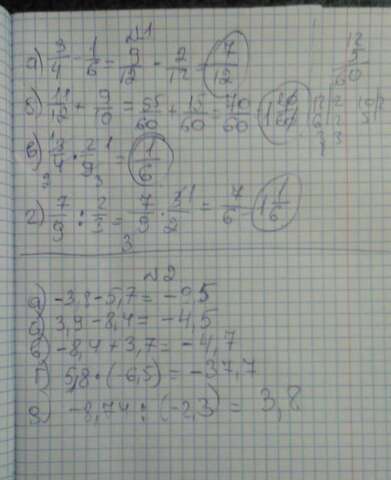 №1
а) 3/4 - 1/6 = 9/12 - 2/12 = 7/12
б) 11/12 + 9/10 = 55/60 + /60 = /60
в) 3/4 · 2/9 = 1/6
г) 7/9 : 2/3 = 7/9 · 3/2 = 7/6 = 1 1/6
№2
а) -3,8 - 5,7 = -9,5
б) 3,9 - 8,4 = -4,5
в) -8,4 + 3,7 = -4,7
г) 5,8 · (-6,5) = -37,7
д) -8,74 : (-2,3) = 3,8